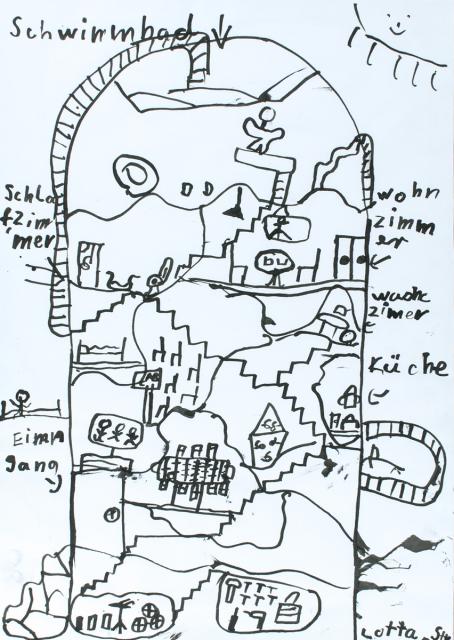 Schwimmbad
Schla
fzim
mer
wohn
zimm
er
DU
wach
zimer
Küche
Eimn
gang